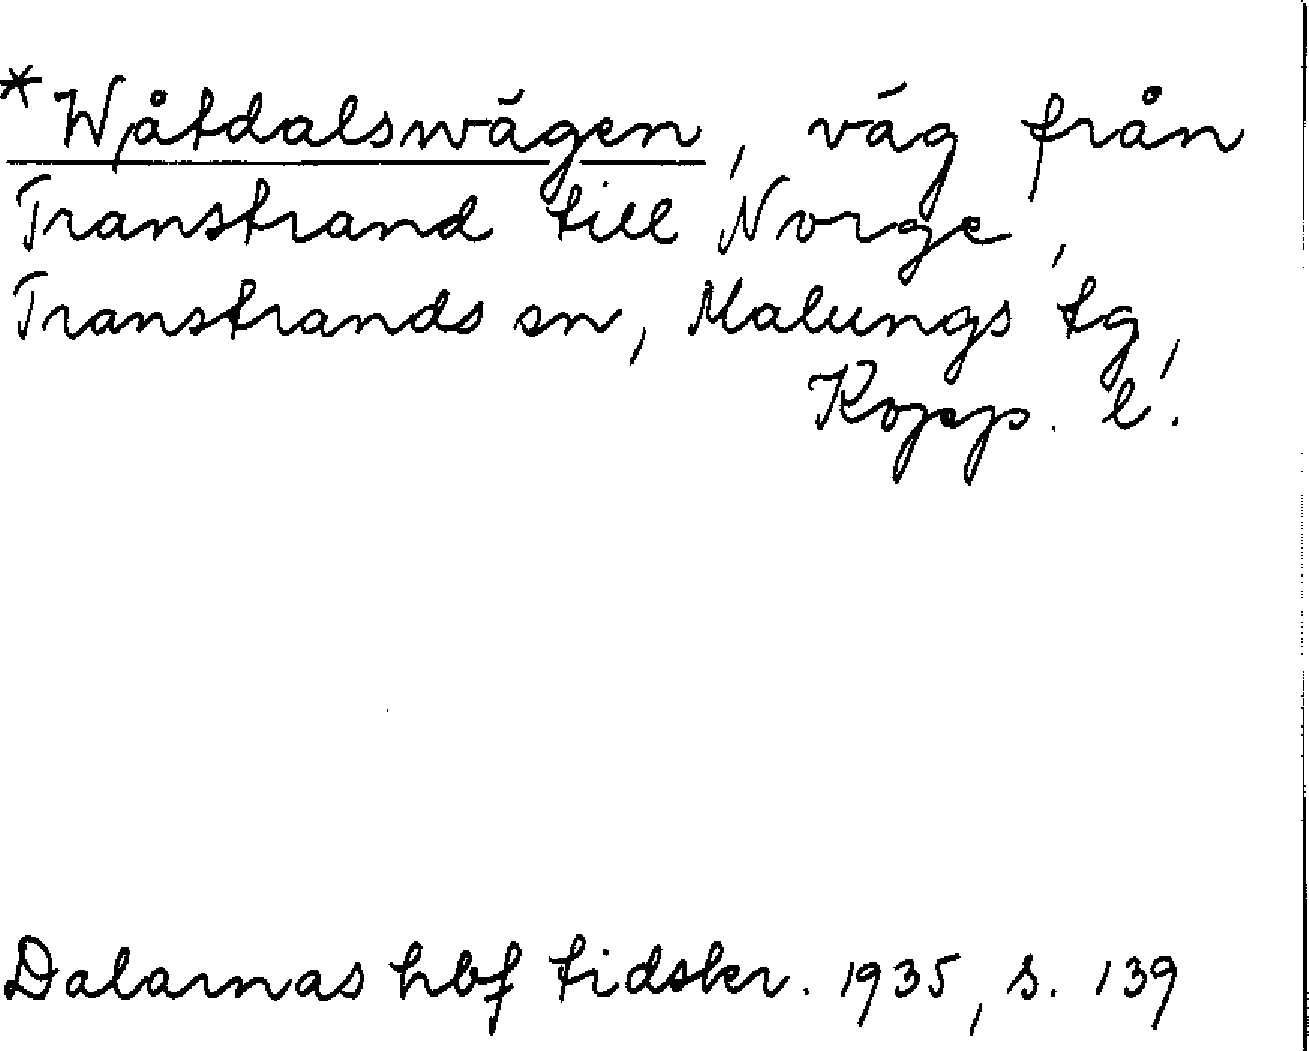 *Wjåtdalswägen, väg från
Transtrand till Norge,
Transtrands sn, Malungs tg,
Kopp. l.
Dalarnas hbf tidskr. 1935, s. 139